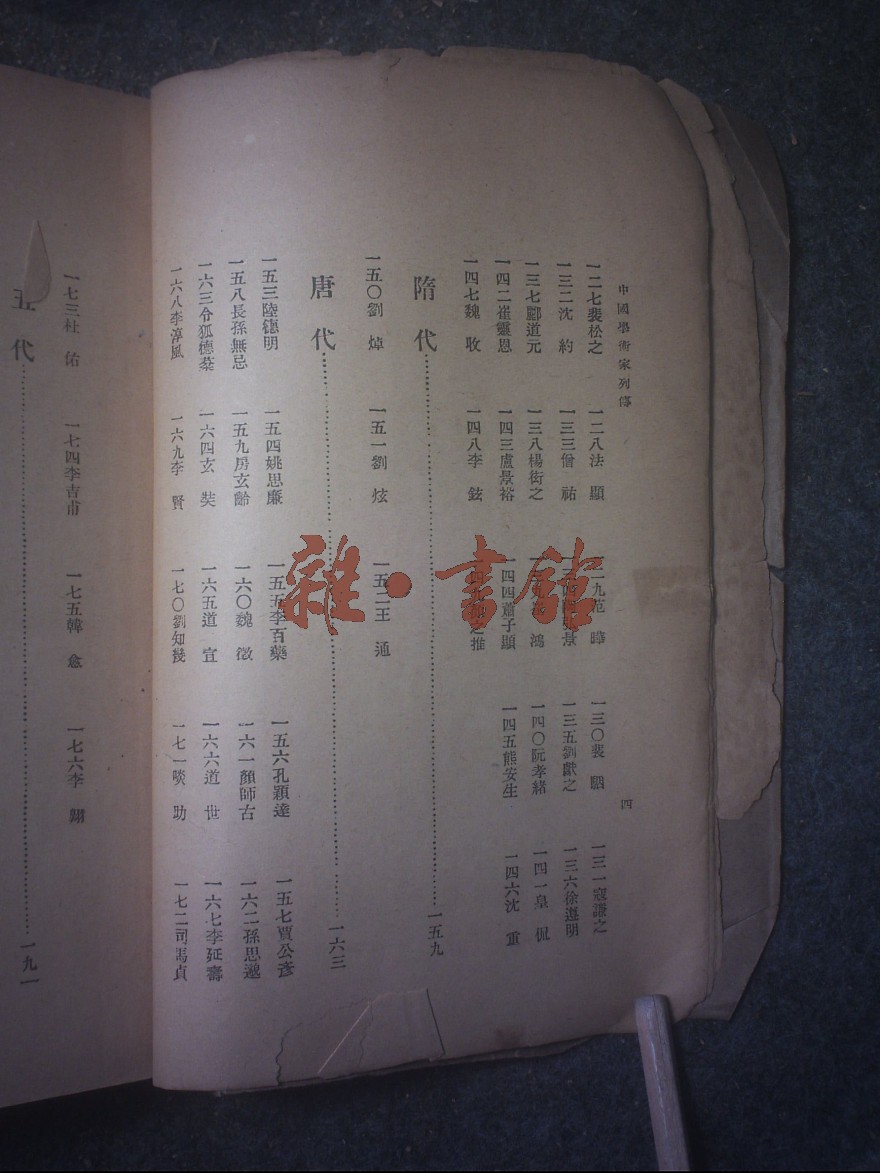 中國學術家列傳
四
一二七裴松之 一二八法 顯 一二九范 曄 一三〇裴 駰 一三一寇謙之
一三二沈 約 一三三僧 祐 一三五劉獻之 一三六徐遵明
一三七酈道元 一三八楊衒之 鴻 一四〇阮孝緒 一四一皇 侃
一四二崔靈恩 一四三盧景裕 一四四蕭子顯 一四五熊安生 一四六沈 重
一四七魏 收 一四八李 鉉 之推
隋代 一五九
一五〇劉 焯 一五一劉 炫 一五二王 通
唐代 一六三
一五三陸德明 一五四姚思廉 一五五李百藥 一五六孔穎達 一五七賈公彥
一五八長孫無忌 一五九房玄齡 一六〇魏 徵 一六一顏師古 一六二孫思邈
一六三令狐德棻 一六四玄 奘 一六五道 宣 一六六道 世 一六七李延壽
一六八李淳風 一六九李 賢 一七〇劉知幾 一七一啖 助 一七二司馬貞
一七三杜 佑 一七四李吉甫 一七五韓 愈 一七六李 翱
五代 一九一
雜·書館